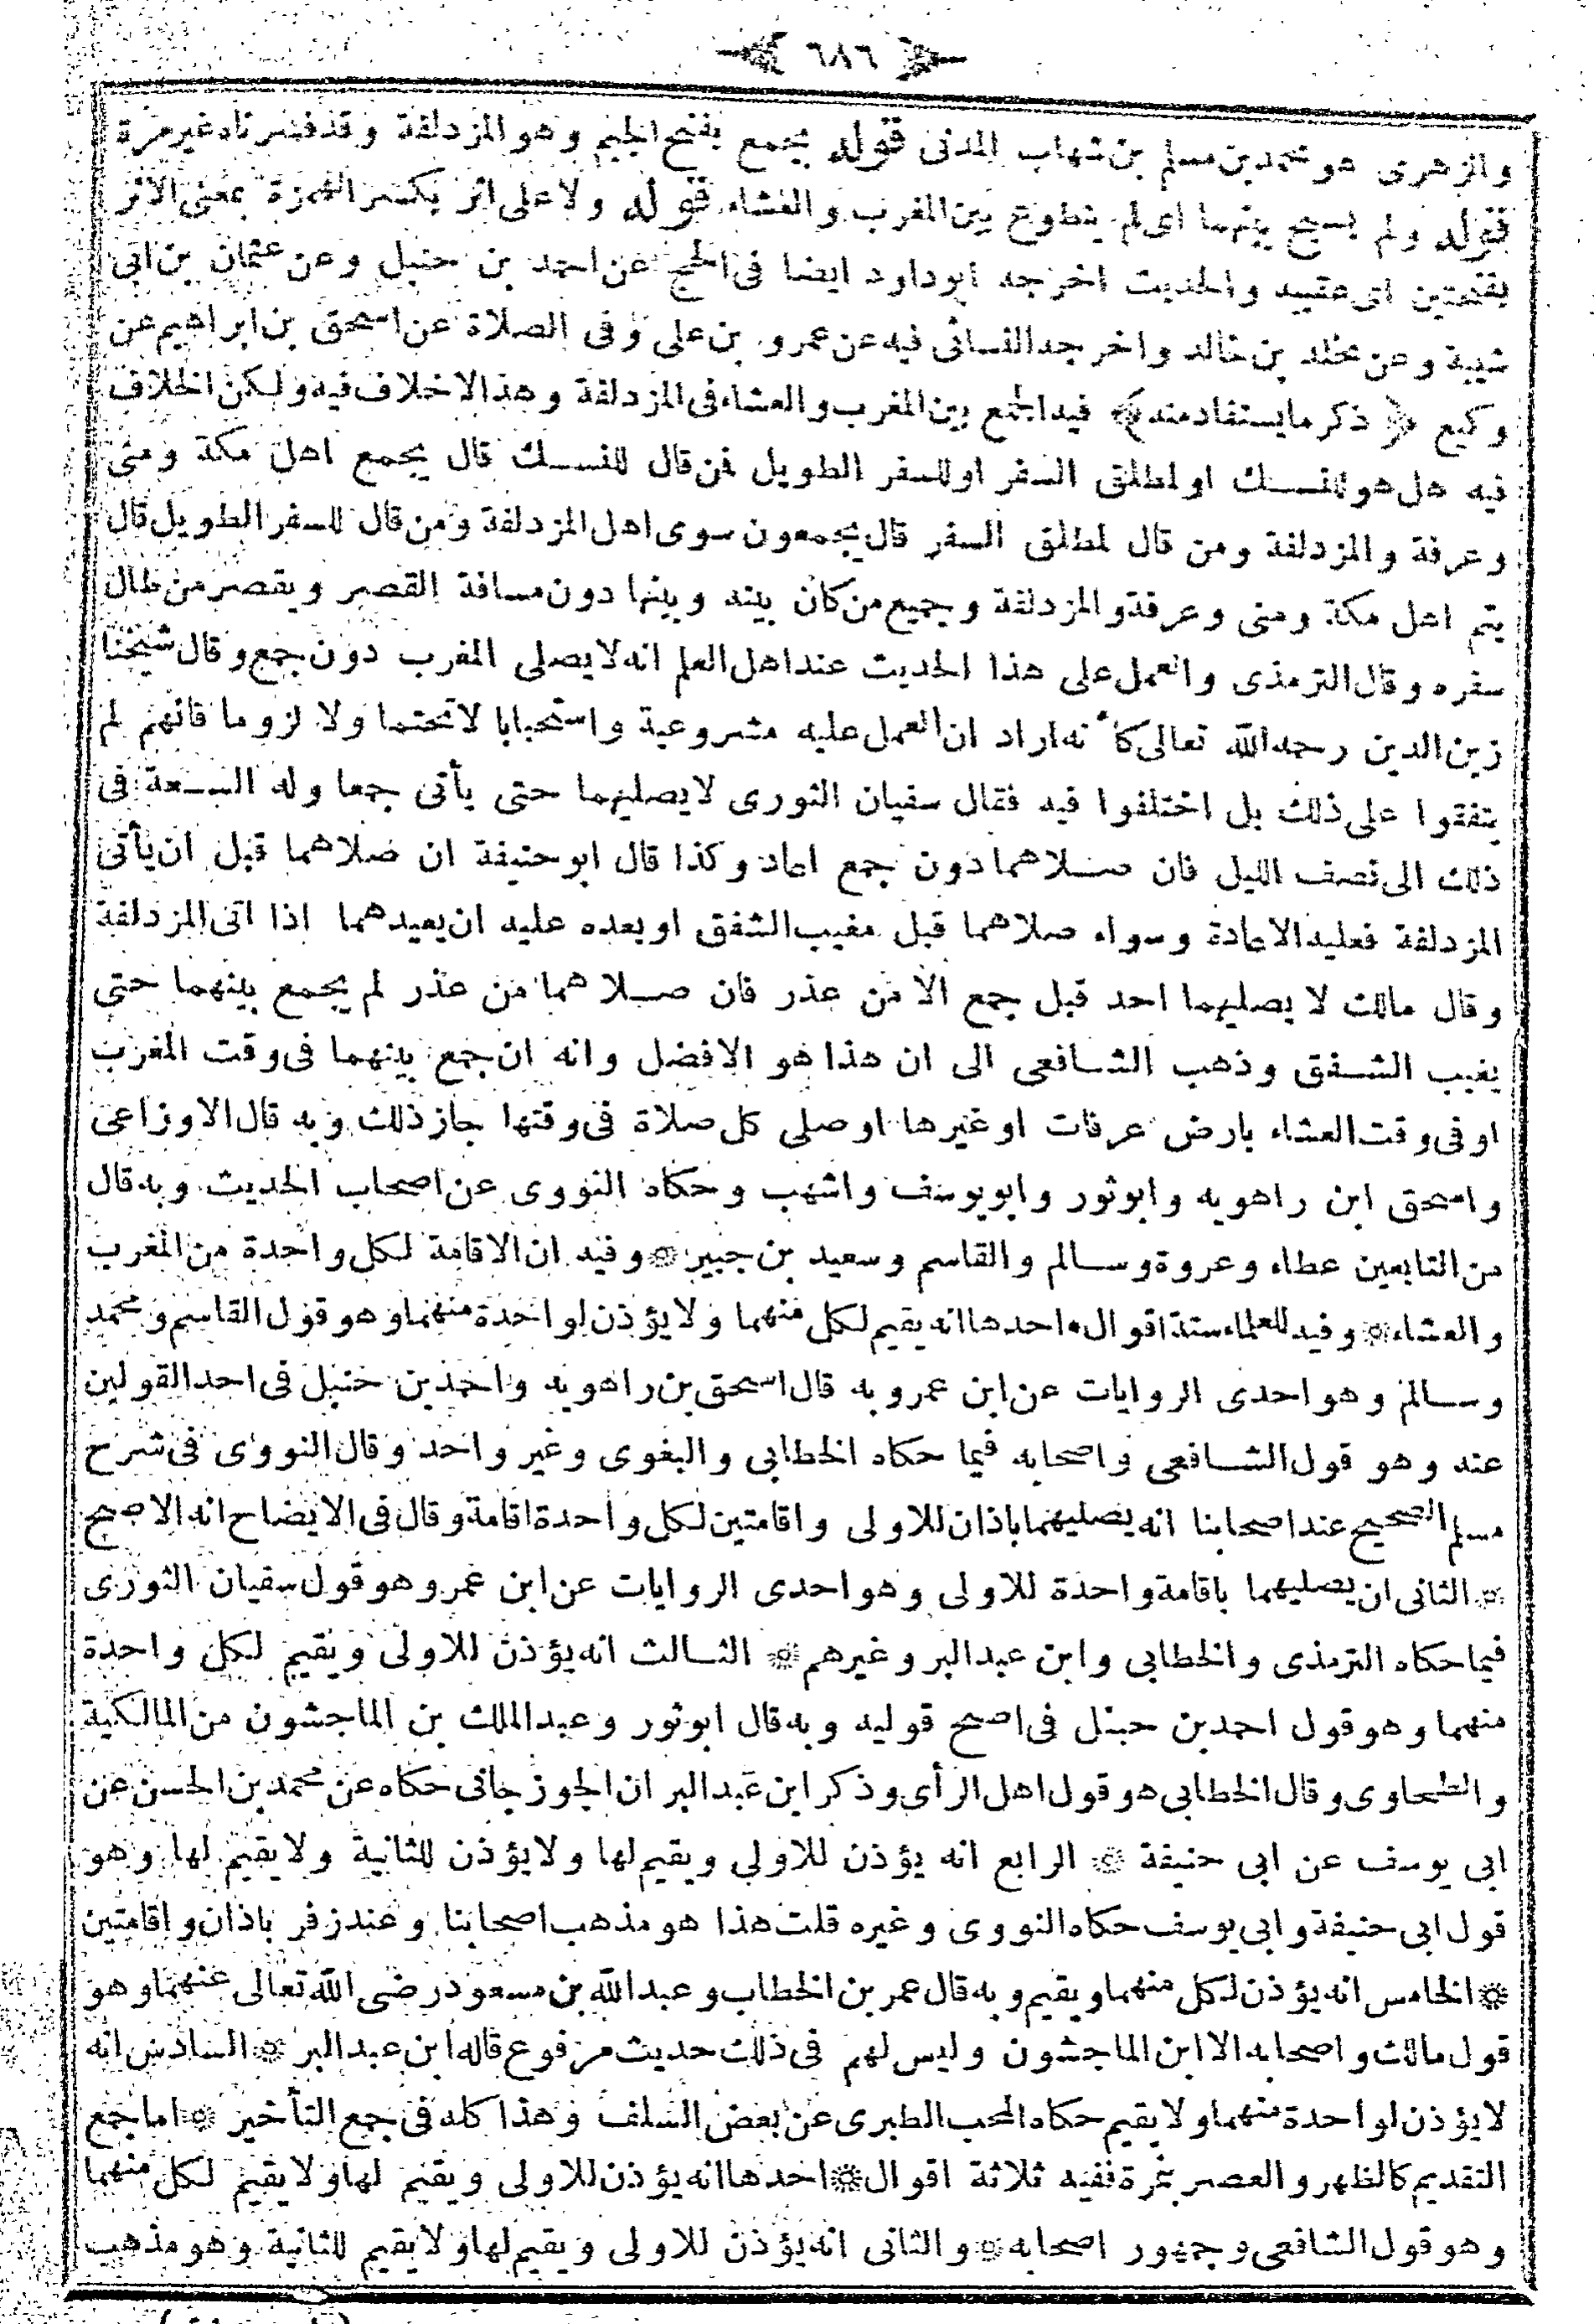 ٦٨٦
والزهرى هو محمد بن مسلم بن شهاب المدنى قوله بجمع بفتح الجيم وهو المزدلفة وقد فسرناه غير مرة
قوله ولم يسبح بينهما اى لم يتطوع بين المغرب والعشاء قوله ولا على اثر بكسر الهمزة بمعنى الاثر
بفتحتين اى عقيبه والحديث اخرجه ابوداود ايضا فى الحج عن احمد بن حنبل وعن عثمان بن ابى
شيبة وعن مخلد بن خالد واخرجه النسائى فيه عن عمرو بن على وفى الصلاة عن اسحق بن ابراهيم عن
وكيع ﴿ ذكر ما يستفاد منه ﴾ فيه الجمع بين المغرب والعشاء فى المزدلفة وهذا لاخلاف فيه ولكن الخلاف
فيه هل هو للنسك او لمطلق السفر او للسفر الطويل فمن قال للنسك قال يجمع اهل مكة ومنى
وعرفة والمزدلفة ومن قال لمطلق السفر قال يجمعون سوى اهل المزدلفة ومن قال للسفر الطويل قال
يتم اهل مكة ومنى وعرفة والمزدلفة وجميع من كان بينه وبينها دون مسافة القصر ويقصر من طال
سفره وقال الترمذى والعمل على هذا الحديث عند اهل العلم انه لا يصلى المغرب دون جمع وقال شيخنا
زين الدين رحمه الله تعالى كأنه اراد ان العمل عليه مشروعية واستحبابا لا تحتما ولا لزوما فانهم لم
يتفقوا على ذلك بل اختلفوا فيه فقال سفيان الثورى لا يصليهما حتى يأتى جمعا وله السعة فى
ذلك الى نصف الليل فان صلاهما دون جمع اعاد وكذا قال ابو حنيفة ان صلاهما قبل ان يأتى
المزدلفة فعليه الاعادة وسواء صلاهما قبل مغيب الشفق او بعده عليه ان يعيدهما اذا اتى المزدلفة
وقال مالك لا يصليهما احد قبل جمع الا من عذر فان صلاهما من عذر لم يجمع بينهما حتى
يغيب الشفق وذهب الشافعى الى ان هذا هو الافضل وانه ان جمع بينهما فى وقت المغرب
او فى وقت العشاء بارض عرفات او غيرها او صلى كل صلاة فى وقتها جاز ذلك وبه قال الاوزاعى
واسحق ابن راهويه وابوثور وابويوسف واشهب وحكاه النووى عن اصحاب الحديث وبه قال
من التابعين عطاء وعروة وسالم والقاسم وسعيد بن جبير ۞ وفيه ان الاقامة لكل واحدة من المغرب
والعشاء ۞ وفيه للعلماء ستة اقوال ۰ احدها انه يقيم لكل منهما ولا يؤذن لواحدة منهما وهو قول القاسم ومحمد
وسالم وهو احدى الروايات عن ابن عمر وبه قال اسحق بن راهويه واحمد بن حنبل فى احد القولين
عنه وهو قول الشافعى واصحابه فيما حكاه الخطابى والبغوى وغير واحد وقال النووى فى شرح
مسلم الصحيح عند اصحابنا انه يصليهما باذان للاولى واقامتين لكل واحدة اقامة وقال فى الايضاح انه الاصح
۞ الثانى ان يصليهما باقامة واحدة للاولى وهو احدى الروايات عن ابن عمر وهو قول سفيان الثورى
فيما حكاه الترمذى والخطابى وابن عبدالبر وغيرهم ۞ الثالث انه يؤذن للاولى ويقيم لكل واحدة
منهما وهو قول احمد بن حبنل فى اصح قوليه وبه قال ابوثور وعبدالملك بن الماجشون من المالكية
والطحاوى وقال الخطابى هو قول اهل الرأى وذكر ابن عبدالبر ان الجوزجانى حكاه عن محمد بن الحسن عن
ابى يوسف عن ابى حنيفة ۞ الرابع انه يؤذن للاولى ويقيم لها ولا يؤذن للثانية ولا يقيم لها وهو
قول ابى حنيفة وابى يوسف حكاه النووى وغيره قلت هذا هو مذهب اصحابنا وعند زفر باذان واقامتين
۞ الخامس انه يؤذن لكل منهما ويقيم وبه قال عمر بن الخطاب وعبدالله بن مسعود رضى الله تعالى عنهما وهو
قول مالك واصحابه الا ابن الماجشون وليس لهم فى ذلك حديث مرفوع قاله ابن عبدالبر ۞ السادس انه
لا يؤذن لواحدة منهما ولا يقيم حكاه المحب الطبرى عن بعض السلف وهذا كله فى جمع التأخير ۞ اما جمع
التقديم كالظهر والعصر بنمرة ففيه ثلاثة اقوال ۞ احدها انه يؤذن للاولى ويقيم لها ولا يقيم لكل منهما
وهو قول الشافعى وجمهور اصحابه ۞ والثانى انه يؤذن للاولى ويقيم لها ولا يقيم للثانية وهو مذهب